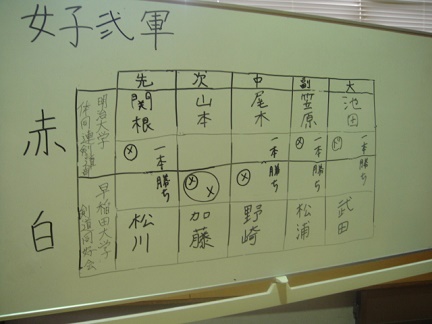 女子弐軍
先 次 中 副 大
赤
明治大学
体同連剣道部
関根 山本 尾木 笠原 池田
メ 一本勝ち メ 一本勝ち ド 一本勝ち
一本勝ち メメ メ 一本勝ち
白
早稲田大学
剣道同好会
松川 加藤 野崎 松浦 武田